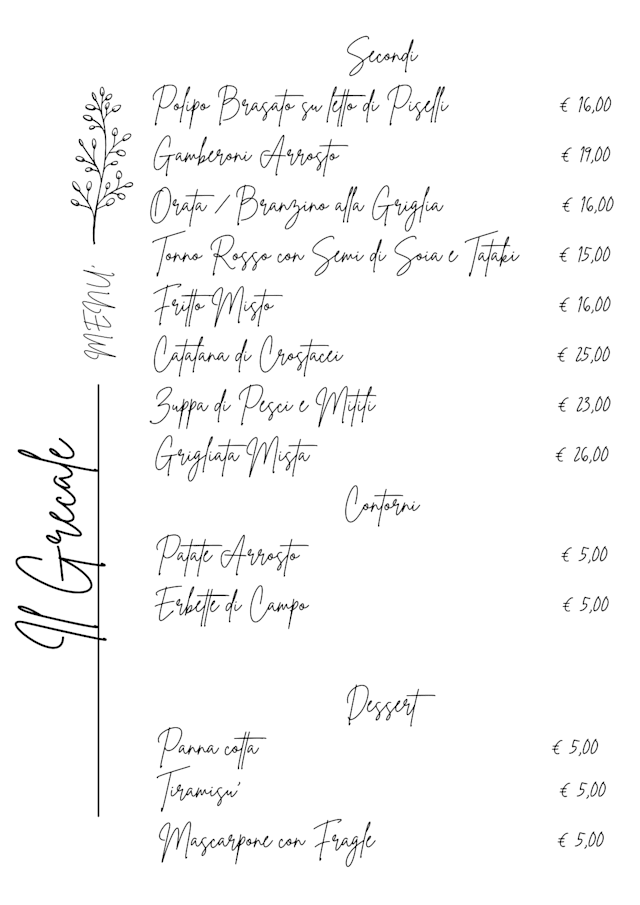 Secondi
Polipo Brasato su letto di Piselli € 16,00
Gamberoni Arrosto € 19,00
Orata / Branzino alla Griglia € 16,00
Tonno Rosso con Semi di Soia e Tataki € 15,00
Fritto Misto € 16,00
Catalana di Crostacei € 25,00
Zuppa di Pesci e Mitili € 23,00
Grigliata Mista € 26,00
Contorni
Patate Arrosto € 5,00
Erbette di Campo € 5,00
Dessert
Panna cotta € 5,00
Tiramisu' € 5,00
Mascarpone con Fragle € 5,00
MENU'
Il Grecale